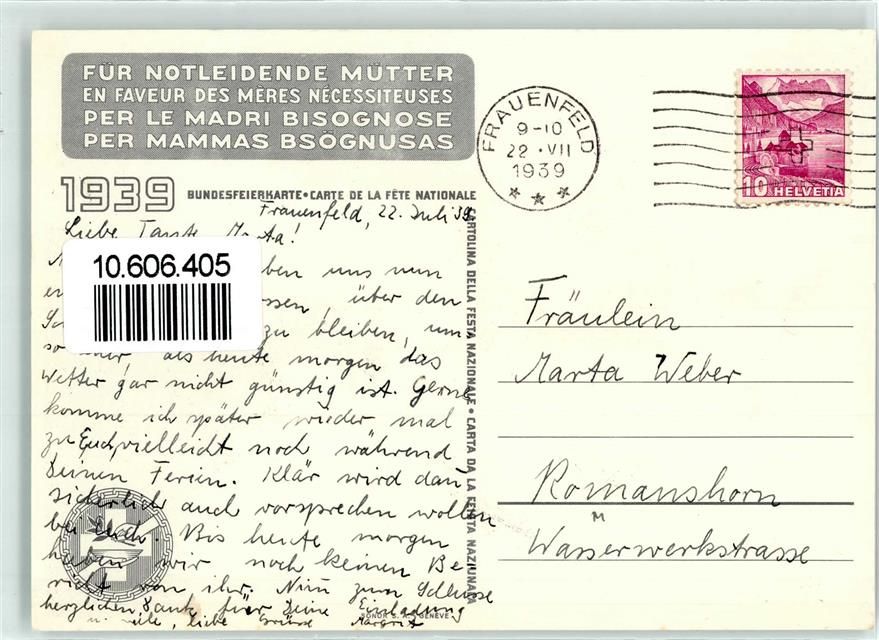 FÜR NOTLEIDENDE MÜTTER
EN FAVEUR DES MÈRES NÉCESSITEUSES
PER LE MADRI BISOGNOSE
PER MAMMAS BSÖGNUSAS
1939 BUNDESFEIERKARTE • CARTE DE LA FÊTE NATIONALE
CARTOLINA DELLA FESTA NAZIONALE • CARTA DA LA FESTA NAZIUNALA
FRAUENFELD
9-10
22.VII
1939
10 HELVETIA
Frauenfeld, 22. Juli 39.
Liebe Tante Marta!
10.606.405
ben uns nun
ssen, über den
zu bleiben, um
so mehr, als heute morgen das
Wetter gar nicht günstig ist. Gerne
komme ich später wieder mal
zu Euch, vielleicht noch während
Deinen Ferien. Klär wird dan
sicherlich auch vorsprechen wollen
bei Euch. Bis heute morgen
haben wir noch keinen Be
richt von ihr. Nun zum Schlusse
herzlichen Dank für Deine Einladung
u. viele, liebe Grüsse Margrit
SONOR S. A. GENÈVE
Fräulein
Marta Weber
Romanshorn
Wasserwerkstrasse